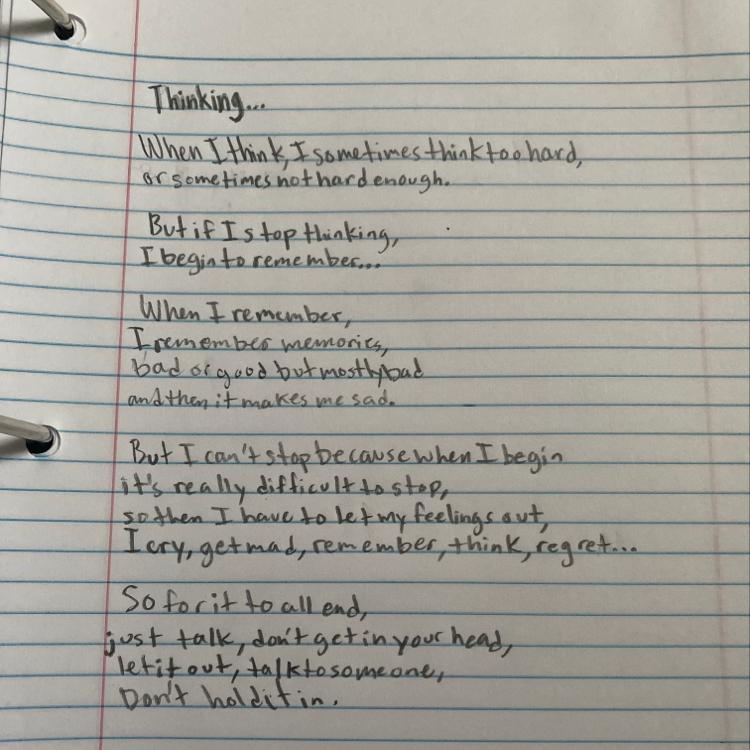 Thinking...
When I think, I sometimes think too hard,
or sometimes not hard enough.
But if I stop thinking,
I begin to remember...
When I remember,
I remember memories,
bad or good but mostly bad
and then it makes me sad.
But I can't stop because when I begin
it's really difficult to stop,
so then I have to let my feelings out,
I cry, get mad, remember, think, regret...
So for it to all end,
just talk, don't get in your head,
let it out, talk to someone,
Don't hold it in.